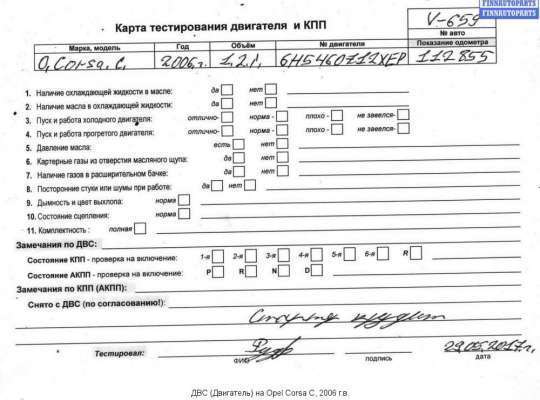 FINNAUTOPARTS
Карта тестирования двигателя и КПП
V-659
№ авто
Марка, модель Год Объём № двигателя Показание одометра
O. Corsa. C. 2006г. 1,2 i. 6H5460712XEP 112855
1. Наличие охлаждающей жидкости в масле: да нет
2. Наличие масла в охлаждающей жидкости: да нет
3. Пуск и работа холодного двигателя: отлично- норма - плохо - не завелся-
4. Пуск и работа прогретого двигателя: отлично- норма - плохо - не завелся-
5. Давление масла: есть нет
6. Картерные газы из отверстия масляного щупа: да нет
7. Наличие газов в расширительном бачке: да нет
8. Посторонние стуки или шумы при работе: да нет
9. Дымность и цвет выхлопа: норма
10. Состояние сцепления: норма
11. Комплектность : полная
Замечания по ДВС:
Состояние КПП - проверка на включение: 1-я 2-я 3-я 4-я 5-я 6-я R
Состояние АКПП - проверка на включение: P R N D
Замечания по КПП (АКПП):
Снято с ДВС (по согласованию!):
Стартер
Тестировал: 29.05.2017г.
ФИО подпись дата
ДВС (Двигатель) на Opel Corsa C, 2006 г.в.